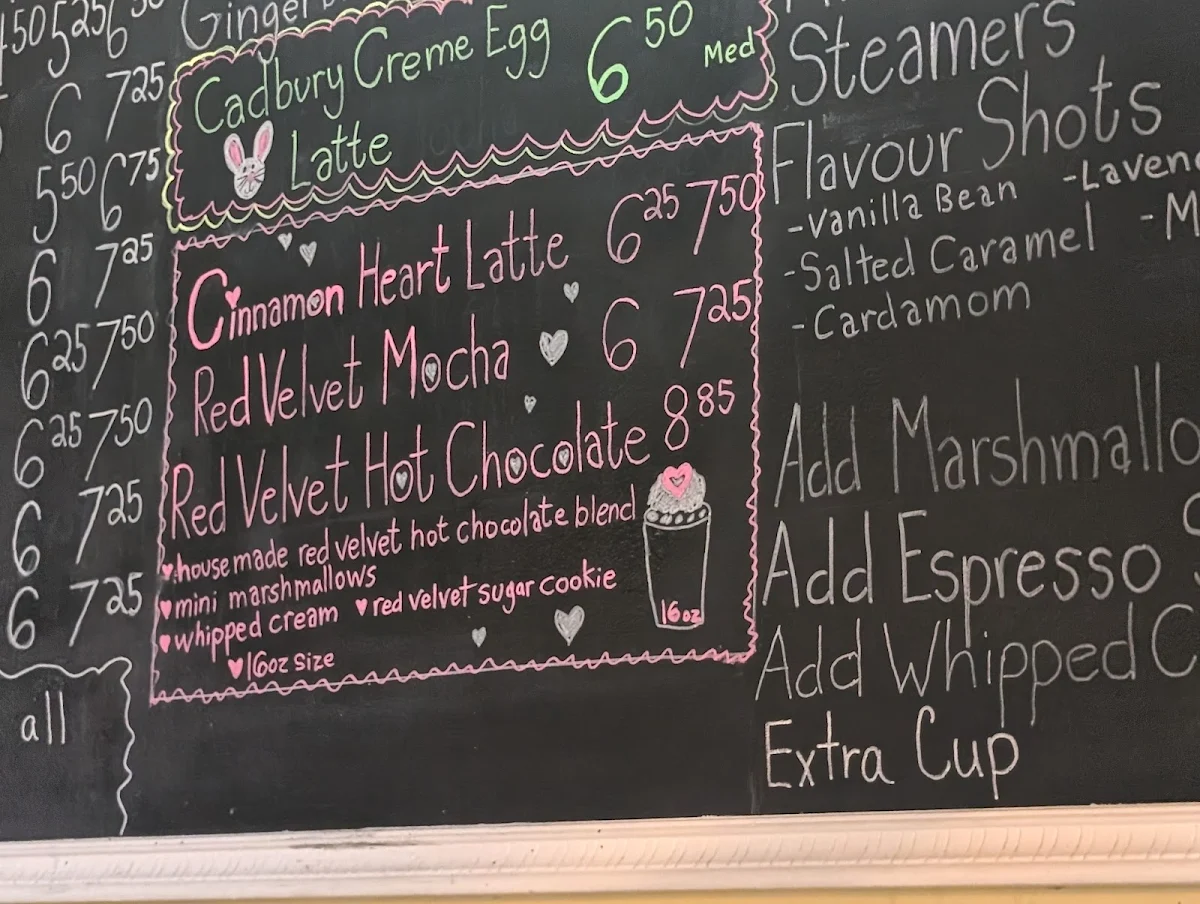 6 7.25
5.50 6.75
6 7.25
6.25 7.50
6.25 7.50
6 7.25
6 7.25
all
Cadbury Creme Egg 6.50 Med
Latte
Cinnamon Heart Latte 6.25 7.50
Red Velvet Mocha 6 7.25
Red Velvet Hot Chocolate 8.85
house made red velvet hot chocolate blend
mini marshmallows
whipped cream ♥ red velvet sugar cookie
♥ 16oz size
16oz
Steamers
Flavour Shots
-Vanilla Bean
-Salted Caramel
-Cardamom
Add
Add Espresso
Add Whipped
Extra Cup